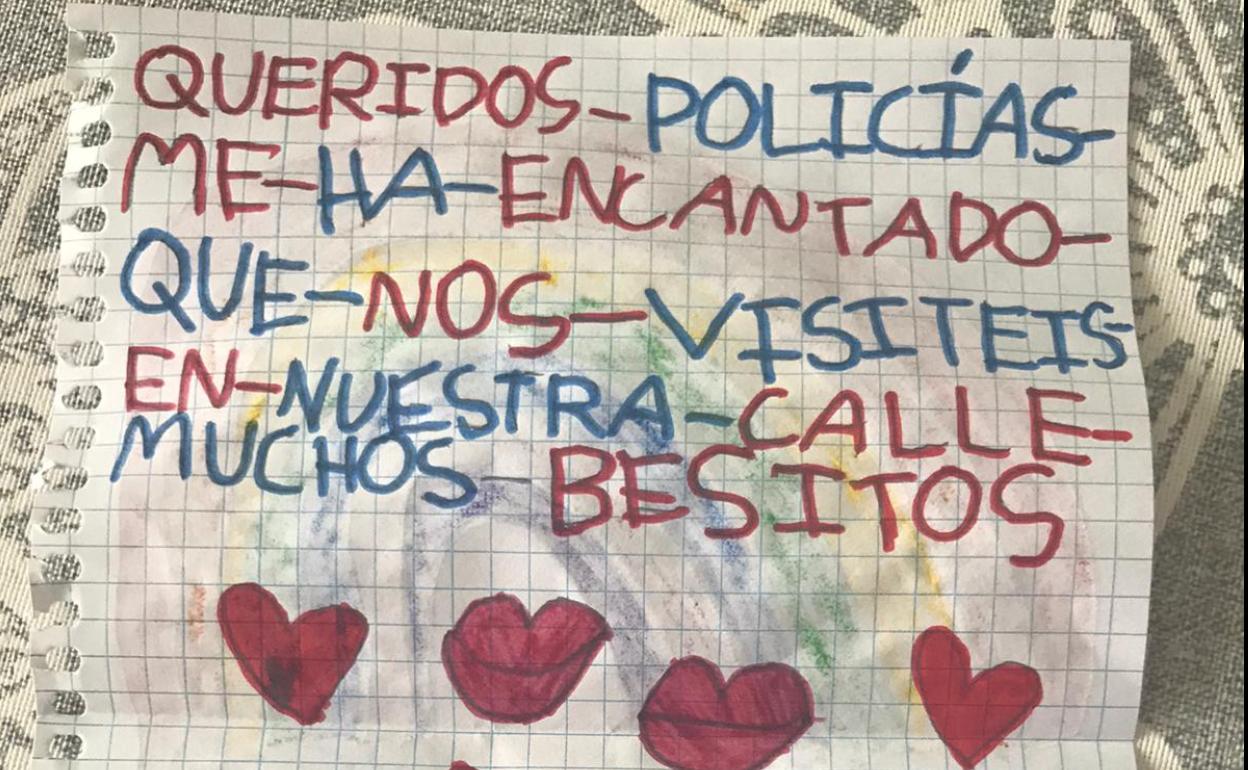 QUERIDOS-POLICÍAS-
ME-HA-ENCANTADO-
QUE-NOS-VISITEIS-
EN-NUESTRA-CALLE-
MUCHOS-BESITOS